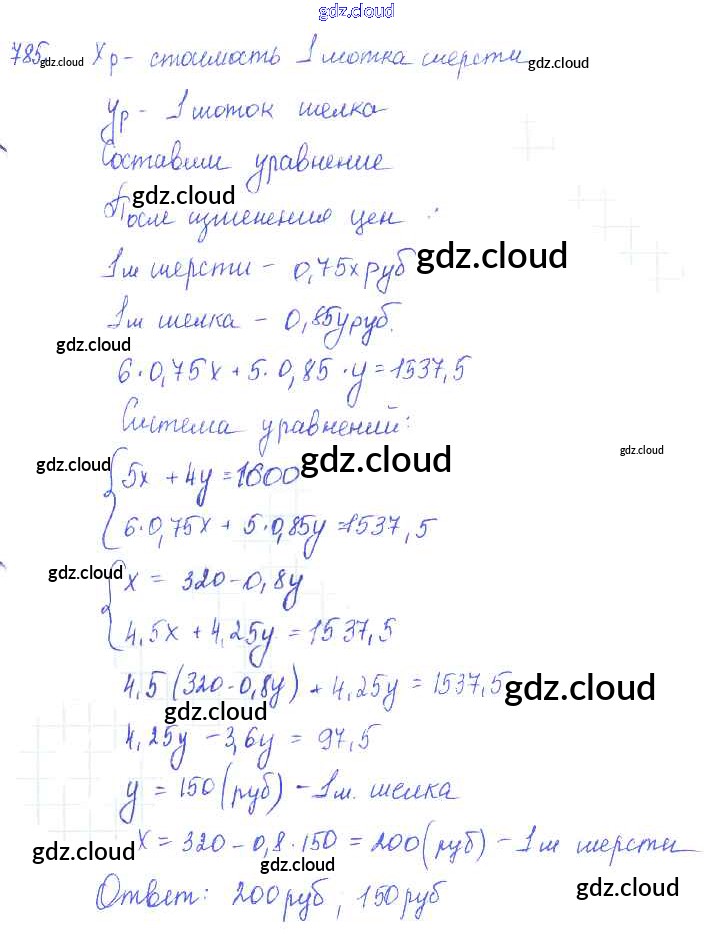 gdz.cloud
785 gdz.cloud xр - стоимость 1 мотка шерсти gdz.cloud
yр - 1 моток шелка
Составим уравнение
gdz.cloud
После изменения цен :
1м шерсти - 0,75x руб gdz.cloud
1м шелка - 0,85y руб.
gdz.cloud
6·0,75x + 5·0,85·y = 1537,5
Система уравнений:
gdz.cloud 5x + 4y = 1600 gdz.cloud gdz.cloud
6·0,75x + 5·0,85y = 1537,5
gdz.cloud x = 320 - 0,8y
4,5x + 4,25y = 1537,5
4,5(320 - 0,8y) + 4,25y = 1537,5 gdz.cloud
gdz.cloud
4,25y - 3,6y = 97,5
y = 150 (руб) - 1м. шелка
x = 320 - 0,8·150 = 200 (руб) - 1м шерсти
gdz.cloud gdz.cloud
Ответ: 200 руб; 150 руб gdz.cloud